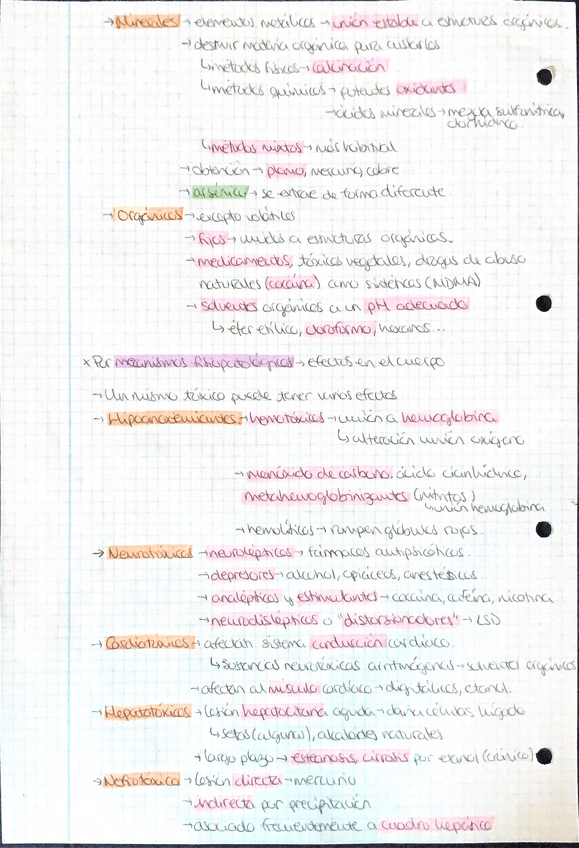 → Minerales → elementos metálicos → unión estable a estructuras orgánicas.
→ destruir materia orgánica para aislarlos
↳ métodos físicos → calcinación
↳ métodos químicos → potentes oxidantes
→ ácidos minerales → mezcla sulfonítrica,
clorhídrico.
↳ métodos mixtos → más habitual
→ obtención → plomo, mercurio, cobre...
→ arsénico → se extrae de forma diferente
→ Orgánicos → excepto volátiles
→ fijos → unidos a estructuras orgánicas.
→ medicamentos, tóxicos vegetales, drogas de abuso
naturales (cocaína) como sintéticas (MDMA)
→ solventes orgánicos a un pH adecuado
↳ éter etílico, cloroformo, hexanos...
x Por mecanismos fisiopatológicos → efectos en el cuerpo
→ Un mismo tóxico puede tener varios efectos
→ Hipoanoxemiantes → hemotóxicos → unión a hemoglobina
↳ alteración unión oxígeno
→ monóxido de carbono, ácido cianhídrico,
metahemoglobinizantes (nitritos)
↳ unión hemoglobina
→ hemolíticos → rompen glóbulos rojos.
→ Neurotóxicos → neurolépticos → fármacos antipsicóticos.
→ depresores → alcohol, opiáceos, anestésicos.
→ analépticos y estimulantes → cocaína, cafeína, nicotina
→ neurodislépticos o "distorsionadores" → LSD
→ Cardiotóxicos → afectan sistema conducción cardíaco.
↳ sustancias neurotóxicas arritmógenas → solventes orgánicos
→ afectan al músculo cardíaco → digitálicos, etanol.
→ Hepatotóxicos → lesión hepatocitaria aguda → daña células hígado
↳ setas (algunas), alcaloides naturales
→ largo plazo → esteanosis, cirrosis por etanol (crónico)
→ Nefrotóxico → lesión directa → mercurio
→ indirecta por precipitación
→ asociado frecuentemente a cuadro hepático